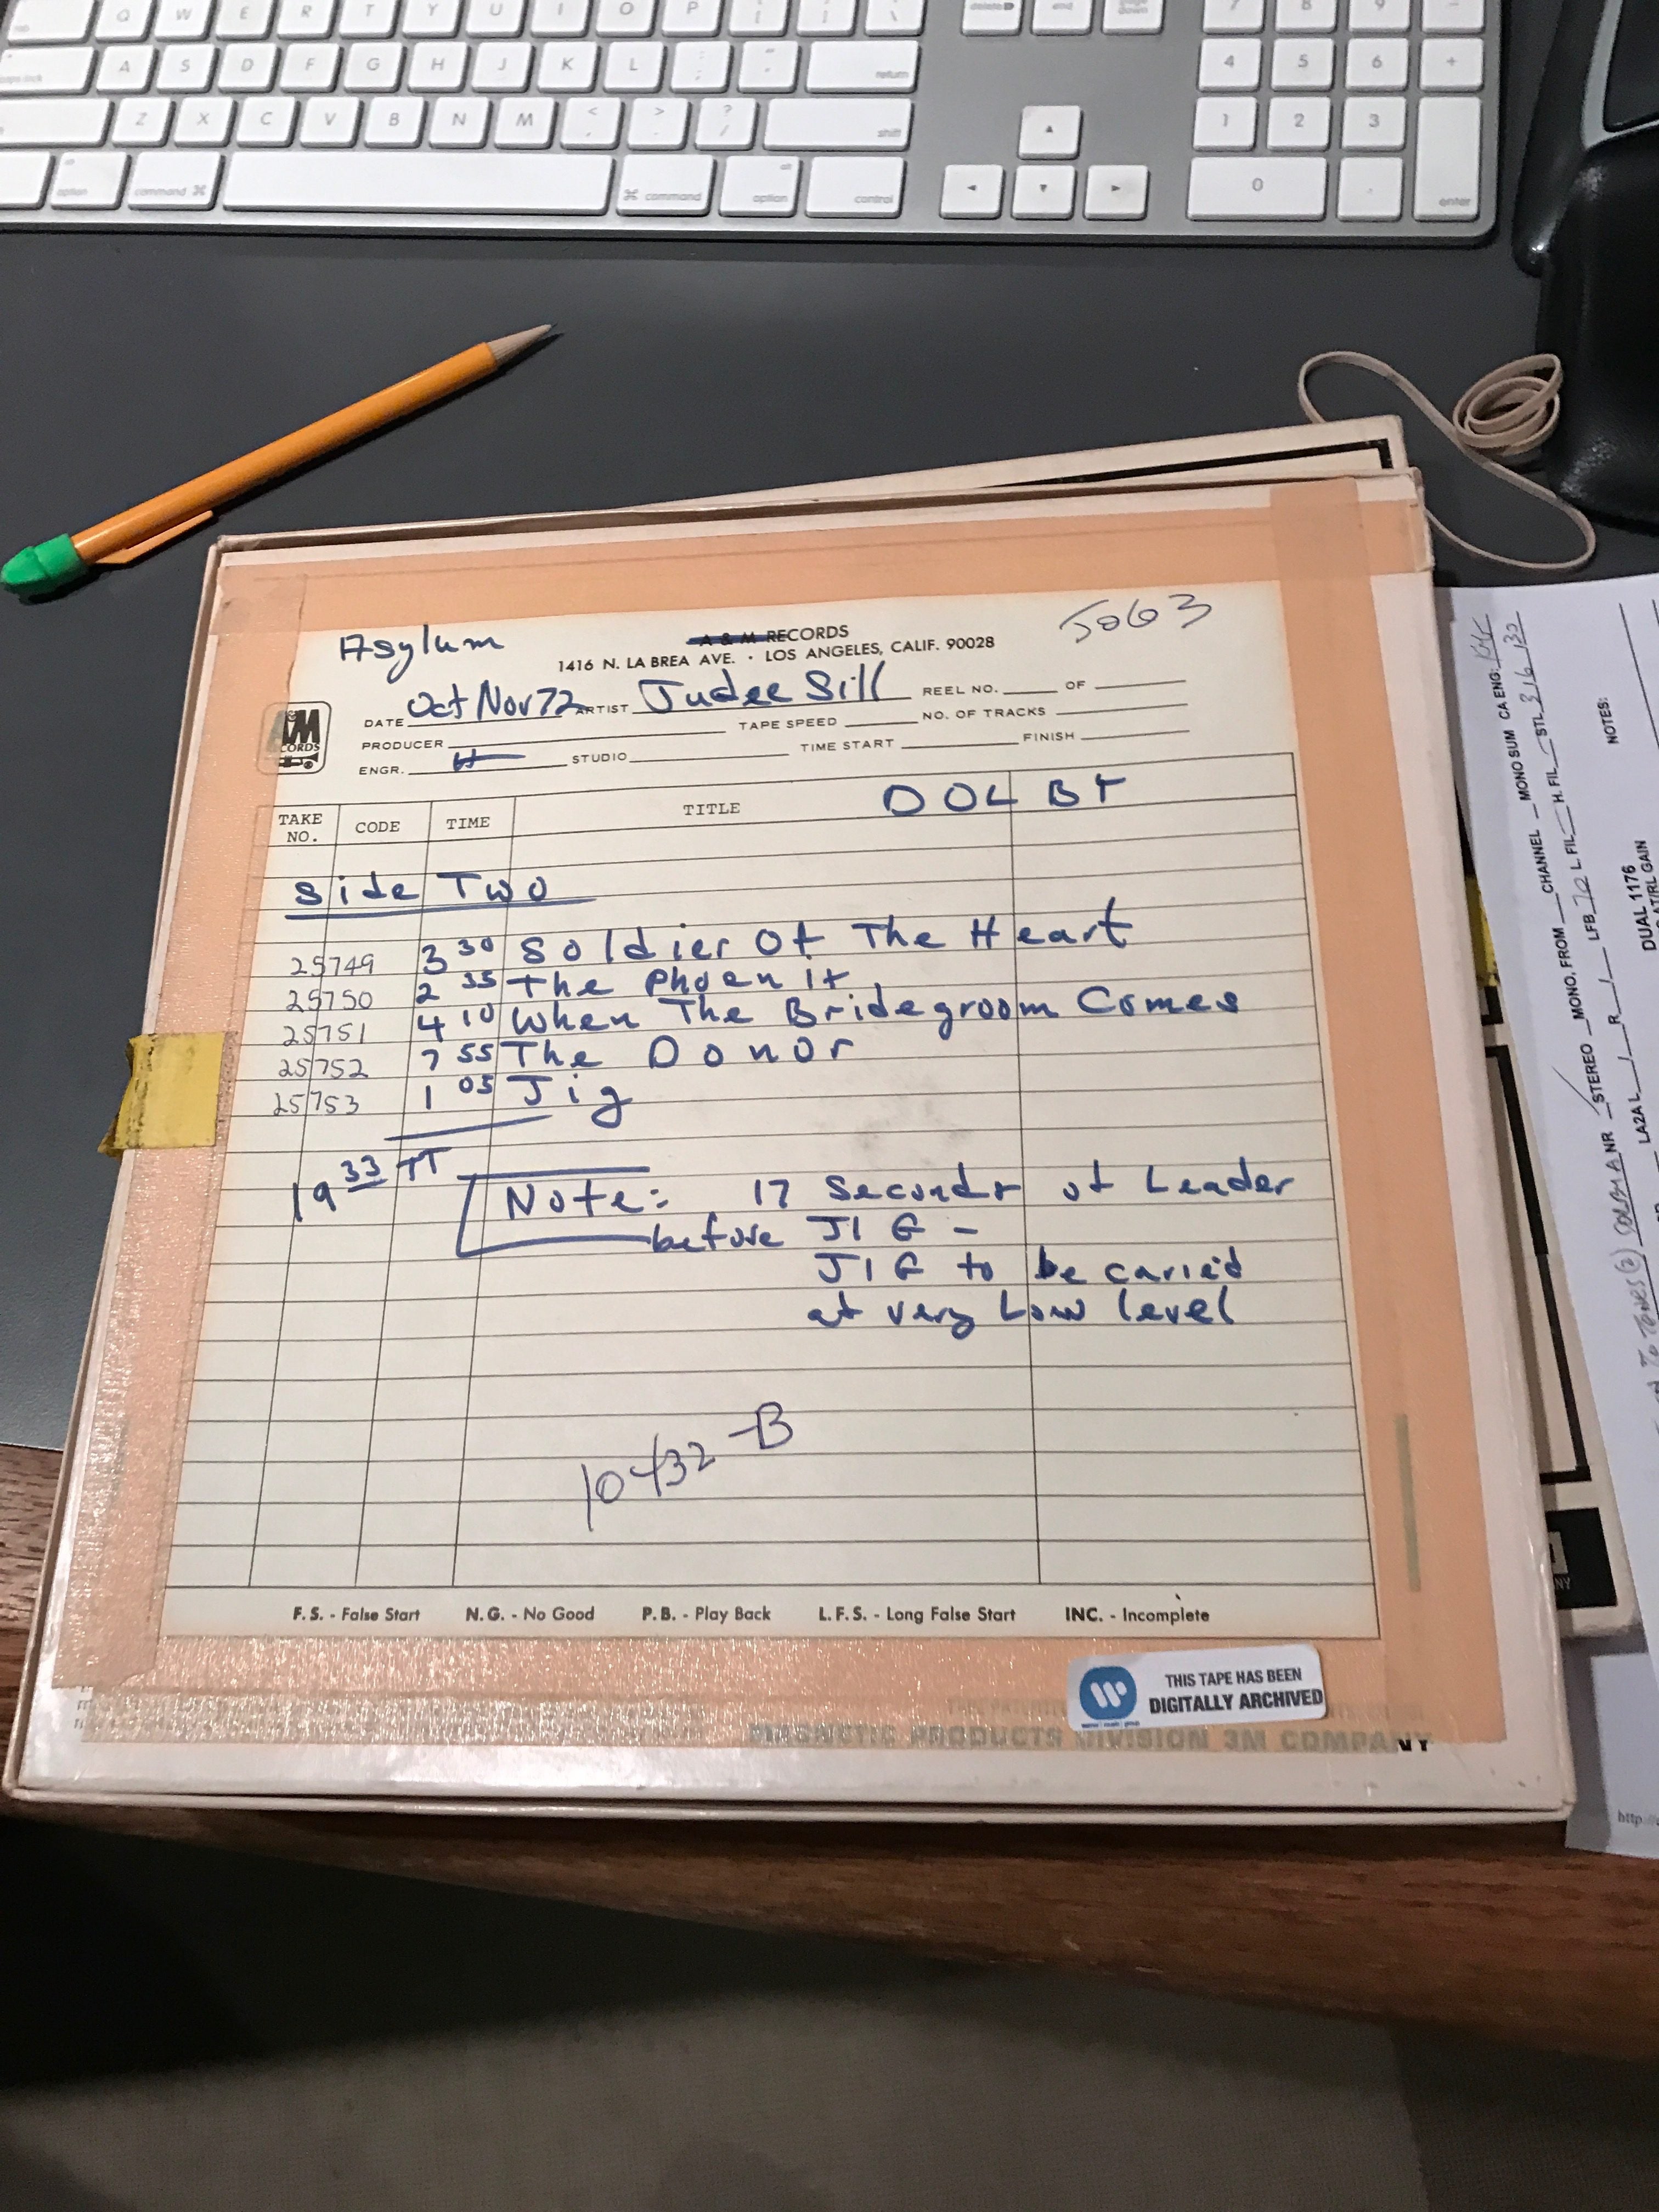 Q W E R T Y U I O P
A S D F G H J K L return
Z X C V B N M shift
option command command option control
delete end
4 5 6 +
1 2 3
0 . enter
Asylum A & M RECORDS 5063
1416 N. LA BREA AVE. · LOS ANGELES, CALIF. 90028
DATE Oct Nov 72 ARTIST Judee Sill REEL NO. OF
PRODUCER TAPE SPEED NO. OF TRACKS
ENGR. H STUDIO TIME START FINISH
TAKE NO. CODE TIME TITLE DOLBY
Side Two
25749 3 30 Soldier Of The Heart
25750 2 35 The Phoenix
25751 4 10 When The Bridegroom Comes
25752 7 55 The Donor
25753 1 05 Jig
19 33 TT
Note: 17 Seconds of Leader
before JIG -
JIG to be caried
at very Low level
10432-B
F.S. - False Start N.G. - No Good P.B. - Play Back L.F.S. - Long False Start INC. - Incomplete
THIS TAPE HAS BEEN
DIGITALLY ARCHIVED
MAGNETIC PRODUCTS DIVISION 3M COMPANY
CA ENG:
MONO SUM
STEREO MONO, FROM CHANNEL
NR LFB L. FIL H. FIL STL
LA2A L R
DUAL 1176
NOTES:
http:/